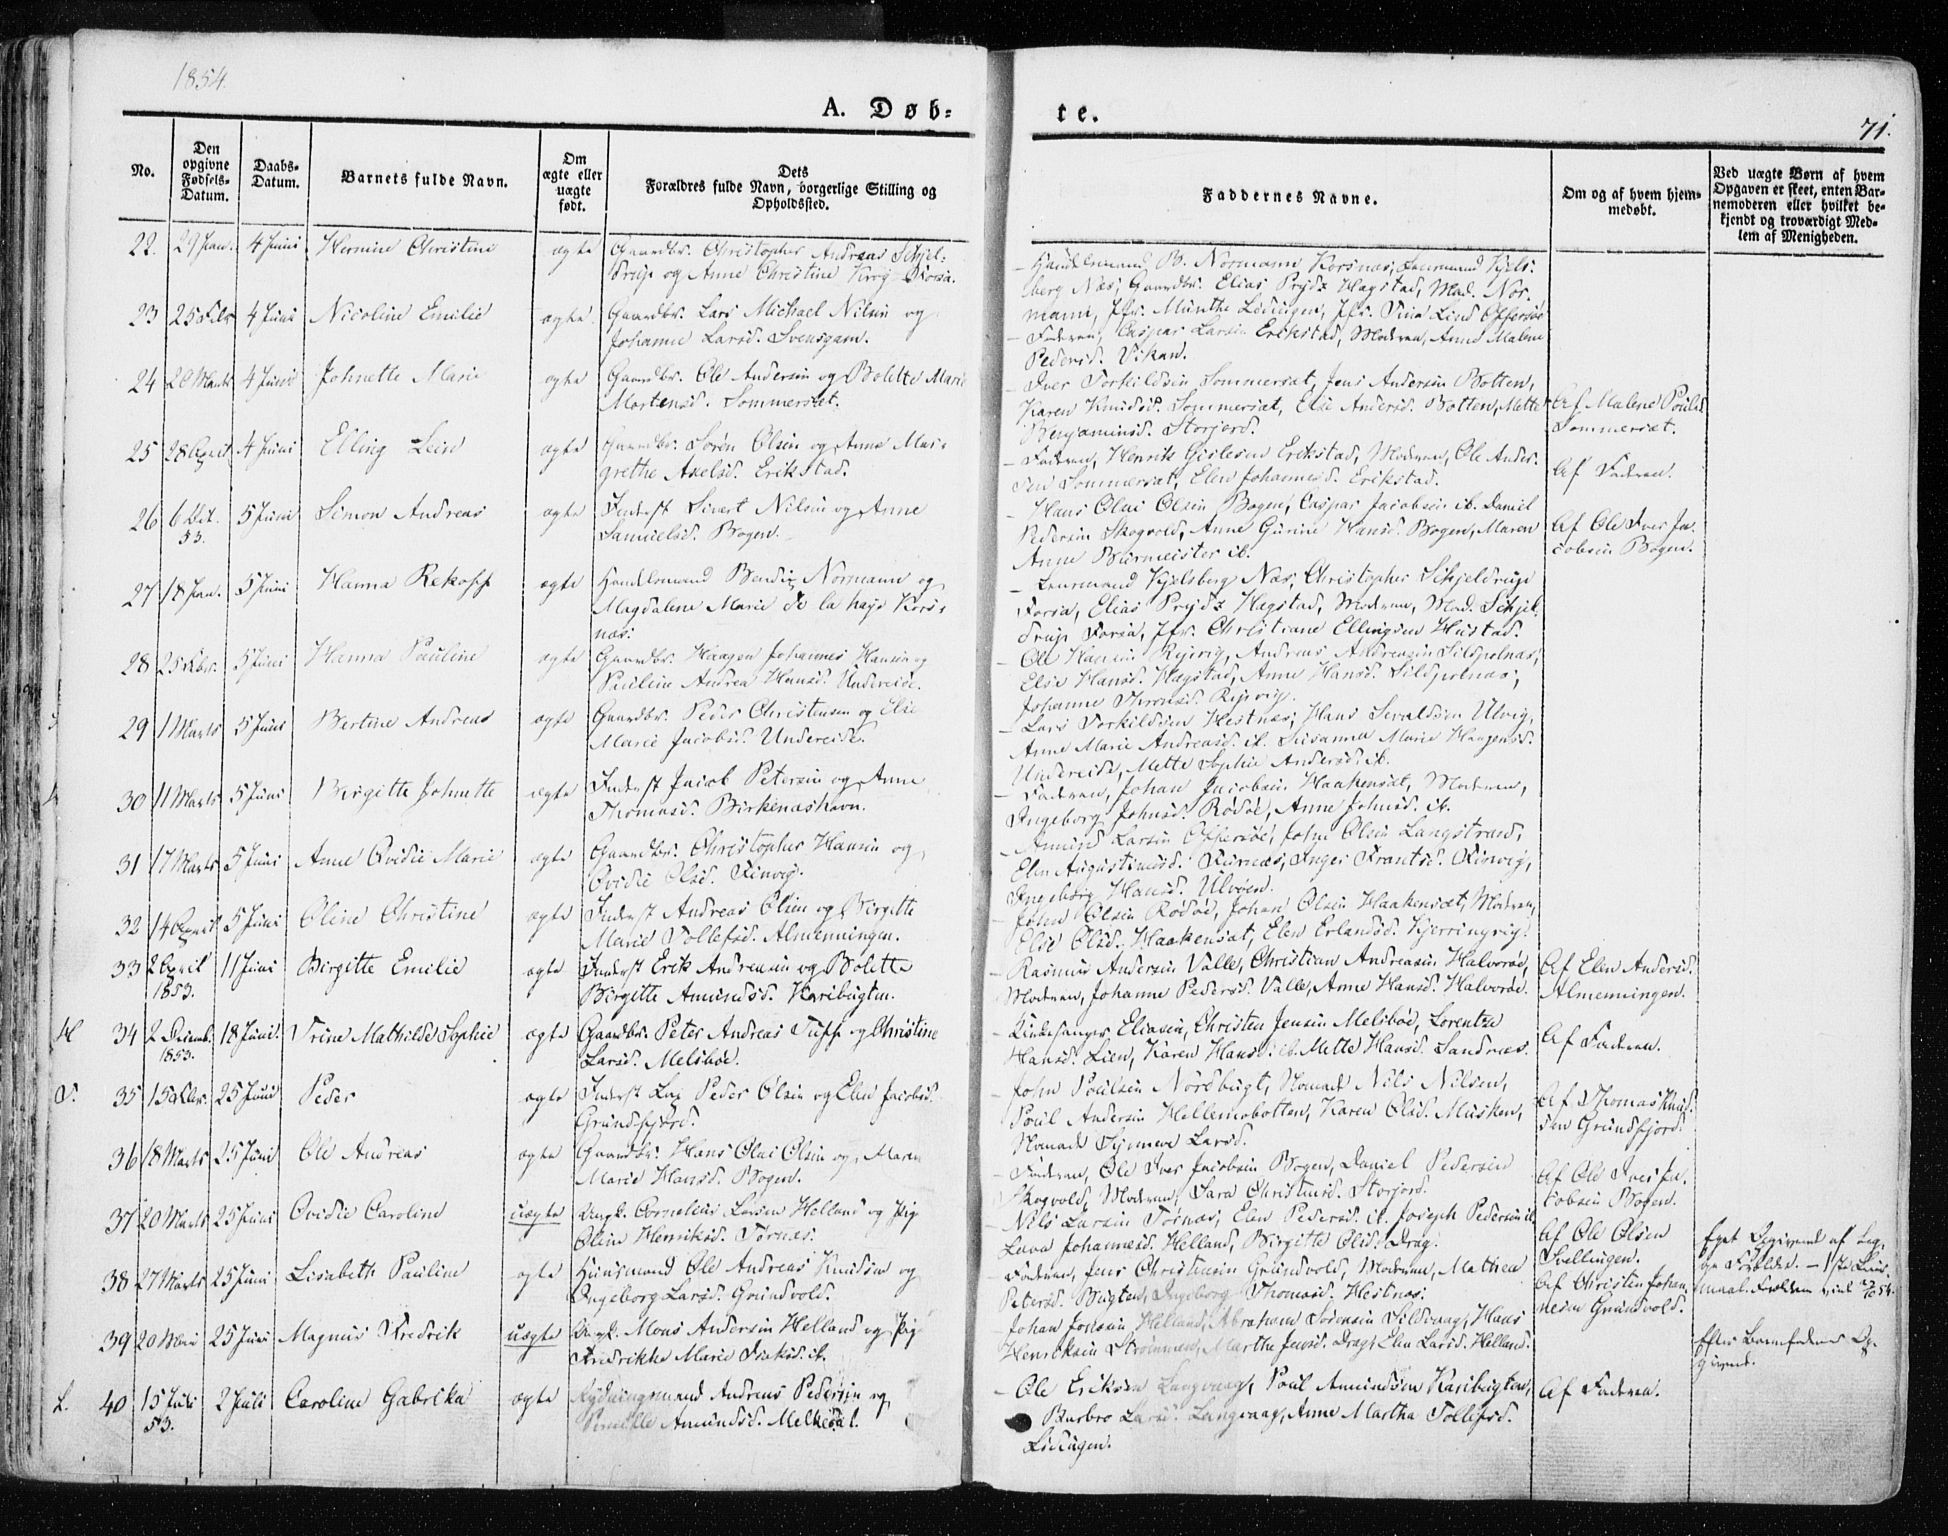 1854.
A. Døb=
te.
71.
No.
Den opgivne Fødsels-Datum.
Daabs-Datum.
Barnets fulde Navn.
Om ægte eller uægte født.
Dets Forældres fulde Navn, borgerlige Stilling og Opholdssted.
Faddernes Navne.
Om og af hvem hjemmedøbt.
Ved uægte Børn af hvem Opgaven er skeet, enten Barnemoderen eller hvilket bekjendt og troværdigt Medlem af Menigheden.
22. 29 Jan. 4 Juni Hermine Christine ægte Gaardbr. Christopher Andreas Schjel=
drup og Anne Christine Krog Forsa.
Handelsmand B. Normann Korsnæs, Leensmand Kjels=
berg Næs, Gaardbr. Elias Prydz Hægstad, Mad. Nor=
mann, Jfr. Munthe Lødingen, Jfr. Lind Offersøe
23 25 Febr 4 Juni Nicoline Emilie ægte Gaardbr. Lars Michael Nilsen og
Johanne Larsd. Svensgam.
Faderen, Caspar Larsen Erikstad, Moderen, Anne Malene
Pedersd. Vikan.
24 20 Marts 4 Juni Johnette Marie ægte Gaardbr. Ole Andersen og Bolette Marie
Mortensd. Sommersæt.
Iver Torkildsen Sommersæt, Jens Andersen Botten,
Karen Knudsd. Sommersæt, Else Andersd. Botten, Mette
Benjaminsd. Storjord.
Af Malene Poulsd.
Sommersæt.
25 28 April 4 Juni Elling Zein ægte Gaardbr. Søren Olsen og Anne Mar=
grethe Axelsd. Erikstad.
Faderen, Henrik Gislesen Erikstad, Moderen, Ole Ander=
sen Sommersæt, Elen Johannesd. Erikstad.
Af Faderen.
26 6 Oct. 53. 5 Juni Simon Andreas ægte Inderst Sivert Nilsen og Anne
Samuelsd. Bogen.
Hans Olai Olsen Bogen, Caspar Jacobsen ib. Daniel
Pedersen Skogvold, Anne Gurine Hansd. Bogen, Maren
Anne Burmeister ib.
Af Ole Iver Ja=
cobsen Bogen.
27 18 Jan. 5 Juni Hanna Rekoff ægte Handelsmand Bendix Normann og
Magdalene Marie de la haye Kors=
næs.
Leensmand Kjelsberg Næs, Christopher Schjeldrup
Forsa, Elias Prydz Hægstad, Moderen, Mad. Schjel=
drup Forsa, Jfr. Christiane Ellingsen Hustad.
28 25 Febr. 5 Juni Hanna Pauline ægte Gaardbr. Haagen Johannes Hansen og
Pauline Andrea Hansd. Undereide.
Ole Hansen Repvig, Andreas Andreasen Sildpolnæs,
Else Hansd. Hægstad, Anne Hansd. Sildpolnæs,
Johanne Repvig.
29 1 Marts 5 Juni Bertine Andrea ægte Gaardbr. Peder Christensen og Else
Marie Jacobsd. Undereide.
Lars Torkildsen Hestnæs, Hans Ulvig,
Anne Marie Andreasd. ib. Susanna Marie Haagensd.
Undereide, Mette Sophie Andersd. ib.
30 11 Marts 5 Juni Birgitte Johnette ægte Inderst Jacob Petersen og Anne
Thomasd. Birkenæshavn.
Faderen, Johan Jacobsen Haakensæt, Moderen,
Ingeborg Johnsd. Rødøe, Anne Johnsd. ib.
31 17 Marts 5 Juni Anne Ovidie Marie ægte Gaardbr. Christopher Hansen og
Ovidie Olsd. Finvig.
Amund Larsen Offersøe, John Olsen Langstrand,
Elen Augustinusd. Inger Frantsd. Finvig,
Ingeborg Hansd. Ulvøen.
32 14 April 5 Juni Oline Christine ægte Inderst Andreas Olsen og Birgitte
Marie Tollefsd. Almenningen.
John Olsen Rødøe, Johan Olsen Haakensæt, Moderen,
Else Olsd. Haakensæt, Elen Erlandsd. Kjerringvig.
33 2 April 1853. 11 Juni Birgitte Emilie ægte Inderst Erik Andreasen og Bolette
Birgitte Amundsd. Karibugten.
Rasmus Andersen Valle, Christian Andreasen Halvorøe,
Moderen, Johanne Pedersd. Valle, Anne Hansd. Halvorøe.
Af Elen Andersd.
Almenningen.
H 34 2 Decemb. 1853. 18 Juni Trine Mathilde Sophie ægte Gaardbr. Peter Andreas Tuff og Christine
Larsd. Melsbøe.
Kirkesanger Eliasen, Christen Jensen Melsbøe, Lorentze
Hansd. Lien, Karen Hansd. ib. Mette Hansd. Sandnæs.
Af Faderen.
T. 35 15 Febr. 25 Juni Peder ægte Inderst Lap Peder Olsen og Elen Jacobsd.
Grundfjord.
John Poulsen Nordbugt, Nomad Nils Nilsen,
Poul Andersen Hellemobotten, Karen Olsd. Musken,
Nomad Synneve Larsd.
Af Thomas Knud=
sen Grundfjord.
36 18 Marts 25 Juni Ole Andreas ægte Gaardbr. Hans Olai Olsen og Maren
Marie Hansd. Bogen.
Faderen, Ole Iver Jacobsen Bogen, Daniel Pedersen
Skogvold, Moderen, Sara Christensd. Storjord.
Af Ole Iver Ja=
cobsen Bogen.
37 20 Marts 25 Juni Ovidie Caroline uægte Ungk. Cornelius Larsen Helland og Pig.
Oline Henriksd. Tørnæs.
Nils Larsen Tørnæs, Elen Pedersd. ib. Joseph Pedersen ib.
Lava Johannesd. Helland, Birgitte Olsd. Drag.
Af Ole Olsen
38 27 Marts 25 Juni Lisabeth Pauline ægte Huusmand Ole Andreas Knudsen og
Ingeborg Larsd. Grundvold.
Faderen, Jens Christensen Grundvold, Moderen, Mathea
Petersd. Bugten, Ingeborg Thomasd. Hestnæs.
Af Christen Johan=
nesen Grundvold.
39 20 Mai 25 Juni Magnus Fredrik uægte Ungk. Mons Andersen Helland og Pig.
Fredrikke Marie Isaksd. ib.
Johan Helland, Abraham Sørensen Sildvaag, Hans
Henriksen Strømnæs, Martha Jensd. Drag, Elen Larsd. Helland.
Efter Barnefaderens Op=
givend.
L. 40 15 Juli 53. 2 Juli Caroline Gabrilka ægte Rydningsmand Andreas Pedersen og
Pernille Amundsd. Melkedal.
Ole Eriksen Langvaag, Poul Amundsen Karibugten,
Barbro Larsd. Langvaag, Anne Martha Tollefsd.
Lødingen.
Af Faderen.